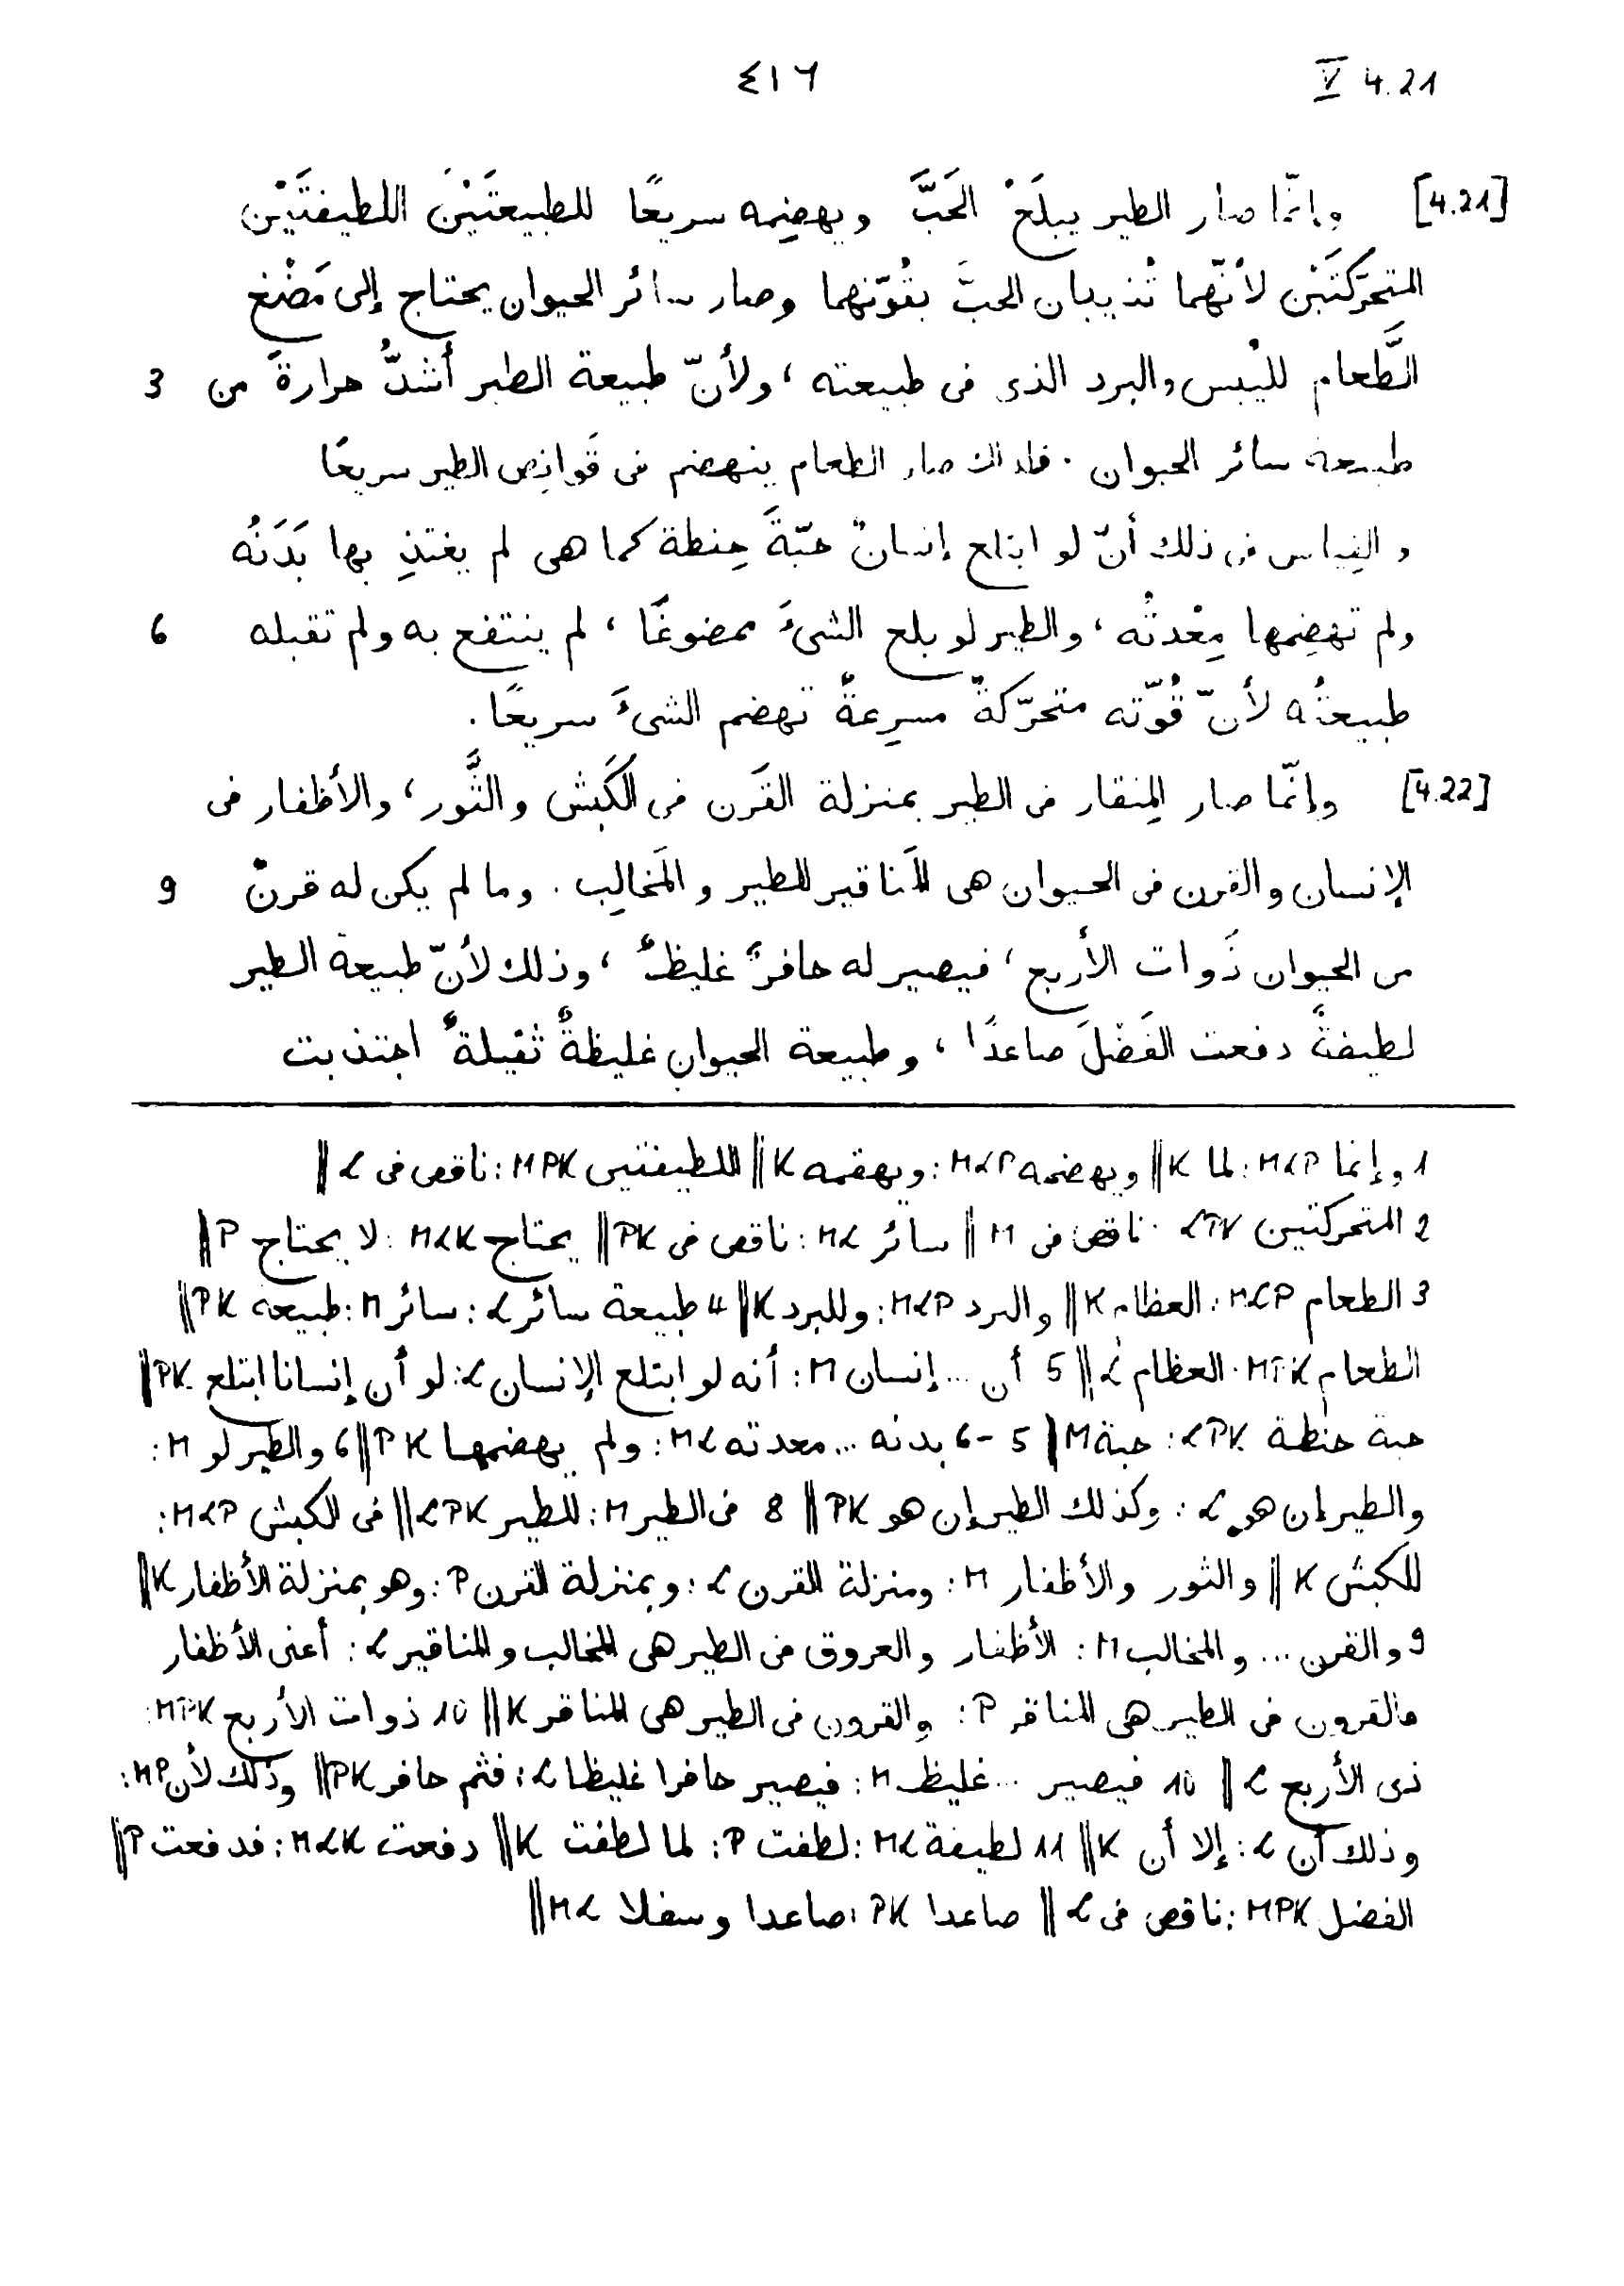 ٤١٦ V 4.21
[4.21] وإنّما صار الطير يبلَعْ الحَبَّ ويهضِمه سريعًا للطبيعتَيْنَ اللطيفتَيْن
المتحرّكتَيْن لأنّهما تُذيبان الحبَّ بقُوّتهما وصار سائر الحيوان يحتاج إلى مَضْغ
الطَّعام لليُبْس والبرد الذى فى طبيعته ، ولأنّ طبيعة الطير أشدُّ حرارةً من 3
طبيعة سائر الحيوان . فلذلك صار الطعام ينهضم فى قَوانِص الطير سريعًا
والقِياس فى ذلك أنّ لو ابتلع إنسانٌ حبّةَ حِنطة كما هى لم يغتذِ بها بَدَنُه
ولم تهضِمها مِعْدتُه ، والطير لو بلع الشىءَ ممضوغًا ، لم ينتفع به ولم تقبله 6
طبيعتُه لأنّ قُوّته متحرّكةٌ مسرِعةٌ تهضم الشىءَ سريعًا .
[4.22] وإنّما صار المِنقار فى الطير بمنزلة القَرن فى الكَبش والثَّور ، والأظفار فى
الإنسان والقرن فى الحيوان هى المَناقير للطير والمَخالِب . وما لم يكن له قرنٌ 9
من الحيوان ذَوات الأربع ، فيصير له حافرٌ غليظٌ ، وذلك لأنّ طبيعة الطير
لطيفةٌ دفعت الفَضْلَ صاعدًا ، وطبيعة الحيوان غليظةٌ ثقيلةٌ اجتذبت
1 وإنما MLP : لما K || ويهضمه MLP : ويهقمه K || اللطيفتين MPK : ناقص فى L ||
2 المتحركتين LPK : ناقص فى M || سائر ML : ناقص فى PK || يحتاج MLK : لا يحتاج P ||
3 الطعام MLP : العظام K || والبرد MLP : وللبرد K || 4 طبيعة سائر L : سائر M : طبيعة PK ||
الطعام MPK : العظام L || 5 أن ... إنسان M : أنه لو ابتلع الإنسان L : لو أن إنسانا ابتلع PK ||
حبة حنطة LPK : حبة M || 5 - 6 بدنه ... معدته ML : ولم يهضمها PK || 6 والطير لو M :
والطير إن هو L : وكذلك الطير إن هو PK || 8 فى الطير M : للطير LPK || فى الكبش MLP :
للكبش K || والثور والأظفار M : ومنزلة القرن L : وبمنزلة القرن P : وهو بمنزلة الأظفار K ||
9 والقرن ... والمخالب M : الأظفار والعروق فى الطير هى المخالب والمناقير L : أعنى الأظفار
فالقرون فى الطير هى المناقر P : والقرون فى الطير هى المناقر K || 10 ذوات الأربع MPK :
ذى الأربع L || 10 فيصير ... غليظ M : فيصير حافرا غليظا L : فثم حافر PK || وذلك لأن MP :
وذلك أن L : إلا أن K || 11 لطيفة ML : لطفت P : لما لطفت K || دفعت MLK : فدفعت P ||
الفضل MPK : ناقص فى L || صاعدا PK : صاعدا وسفلا ML ||